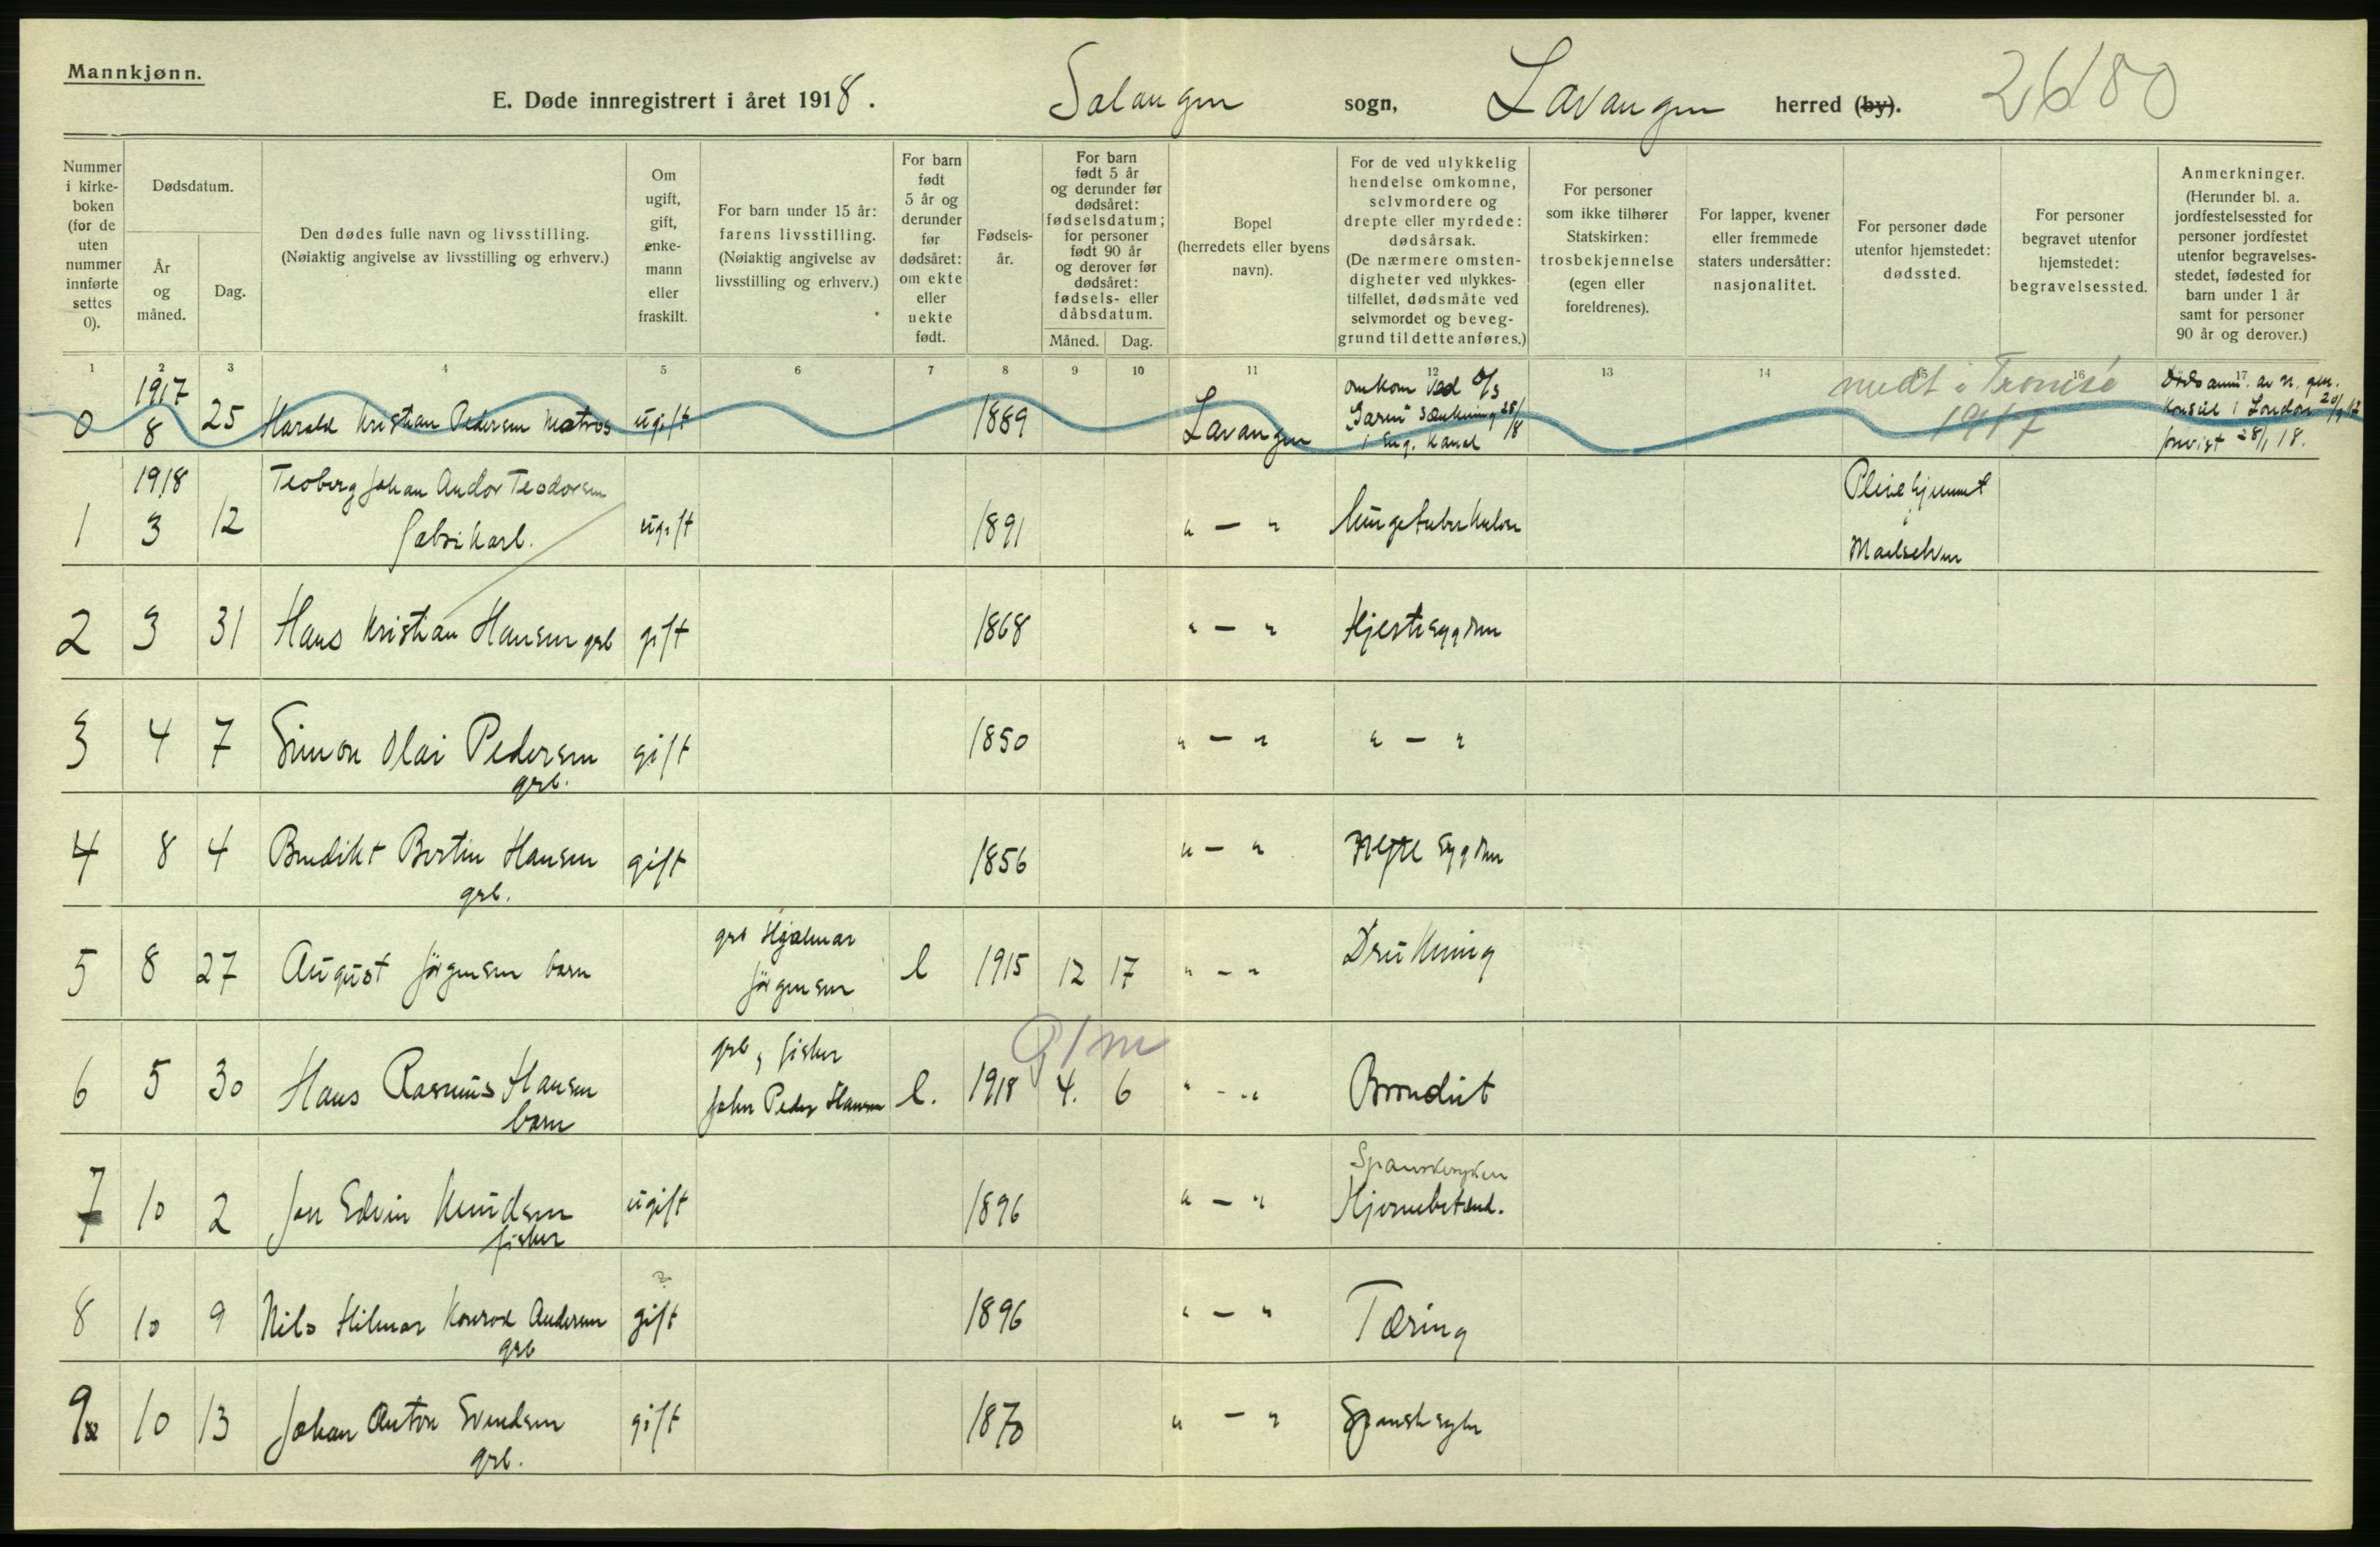 Mannkjønn.
E. Døde innregistrert i året 1918.
Salangen sogn, Lavangen herred (by).
26180
Nummer i kirkeboken (for de uten nummer innførte settes 0).
Dødsdatum.
År og måned.
Dag.
Den dødes fulle navn og livsstilling.
(Nøiaktig angivelse av livsstilling og erhverv.)
Om ugift, gift, enkemann eller fraskilt.
For barn under 15 år: farens livsstilling.
(Nøiaktig angivelse av livsstilling og erhverv.)
For barn født 5 år og derunder før dødsåret: om ekte eller uekte født.
Fødselsår.
For barn født 5 år og derunder før dødsåret: fødselsdatum; for personer født 90 år og derover før dødsåret: fødsels- eller dåbsdatum.
Måned. Dag.
Bopel
(herredets eller byens navn).
For de ved ulykkelig hendelse omkomne, selvmordere og drepte eller myrdede: dødsårsak.
(De nærmere omstendigheter ved ulykkestilfellet, dødsmåte ved selvmordet og beveggrund til dette anføres.)
For personer som ikke tilhører Statskirken: trosbekjennelse (egen eller foreldrenes).
For lapper, kvener eller fremmede staters undersåtter: nasjonalitet.
For personer døde utenfor hjemstedet: dødssted.
For personer begravet utenfor hjemstedet: begravelsessted.
Anmerkninger.
(Herunder bl. a. jordfestelsessted for personer jordfestet utenfor begravelsesstedet, fødested for barn under 1 år samt for personer 90 år og derover.)
1 2 3 4 5 6 7 8 9 10 11 12 13 14 15 16 17
1917
0 8 25 Harald Kristian Pedersen Matros ugift 1889 Lavangen
omkom ved D/S
Garm Sænkning 25/8
i Eng. Kanal
medt i Tromsø
1917
Dødsanm. av n. gen.
Konsul i London 20/9 17
1918
1 3 12 Teoberg Johan Andor Teodorsen
fabrikarb. ugift 1891 " — " Lungetuberkulose
Pleiehjemmet
i
Maalselven
2 3 31 Hans Kristian Hansen grb gift 1868 " — " Hjertesygdom
3 4 7 Simon Olai Pedersen
grb. gift 1850 " — " " — "
4 8 4 Bendikt Bertin Hansen
grb. gift 1856 " — " Nyre sygdom
5 8 27 August Jørgensen barn
grb Hjalmar
Jørgensen
e 1915 12 17 " - " Drukning
6 5 30 Hans Rasmus Hansen
barn
grb, fisker
John Peder Hansen
e. 1918 4. 6 " - "
1 m
7 10 2 Jon Edvin Knudsen
fisker ugift 1896 " — "
Spanskesyken
Hjernebetænd.
8 10 9 Nils Hilmar Konrad Andersen
grb
?
gift 1896 " — " Tæring
9 10 13 Johan Anton Svendsen
grb. gift 1870 " — " Spansk syke